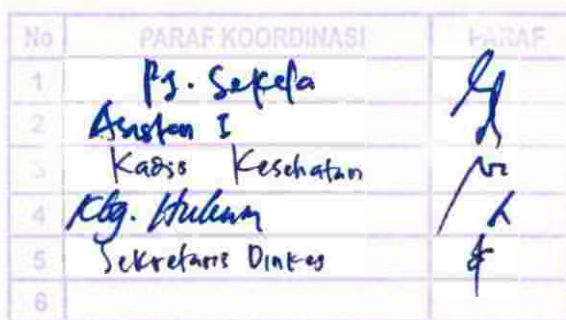 No PARAF KOORDINASI PARAF
1 Pj. Sekda
2 Asisten I
3 Kadis Kesehatan
4 Kbg. Hukum
5 Sekretaris Dinkes
6